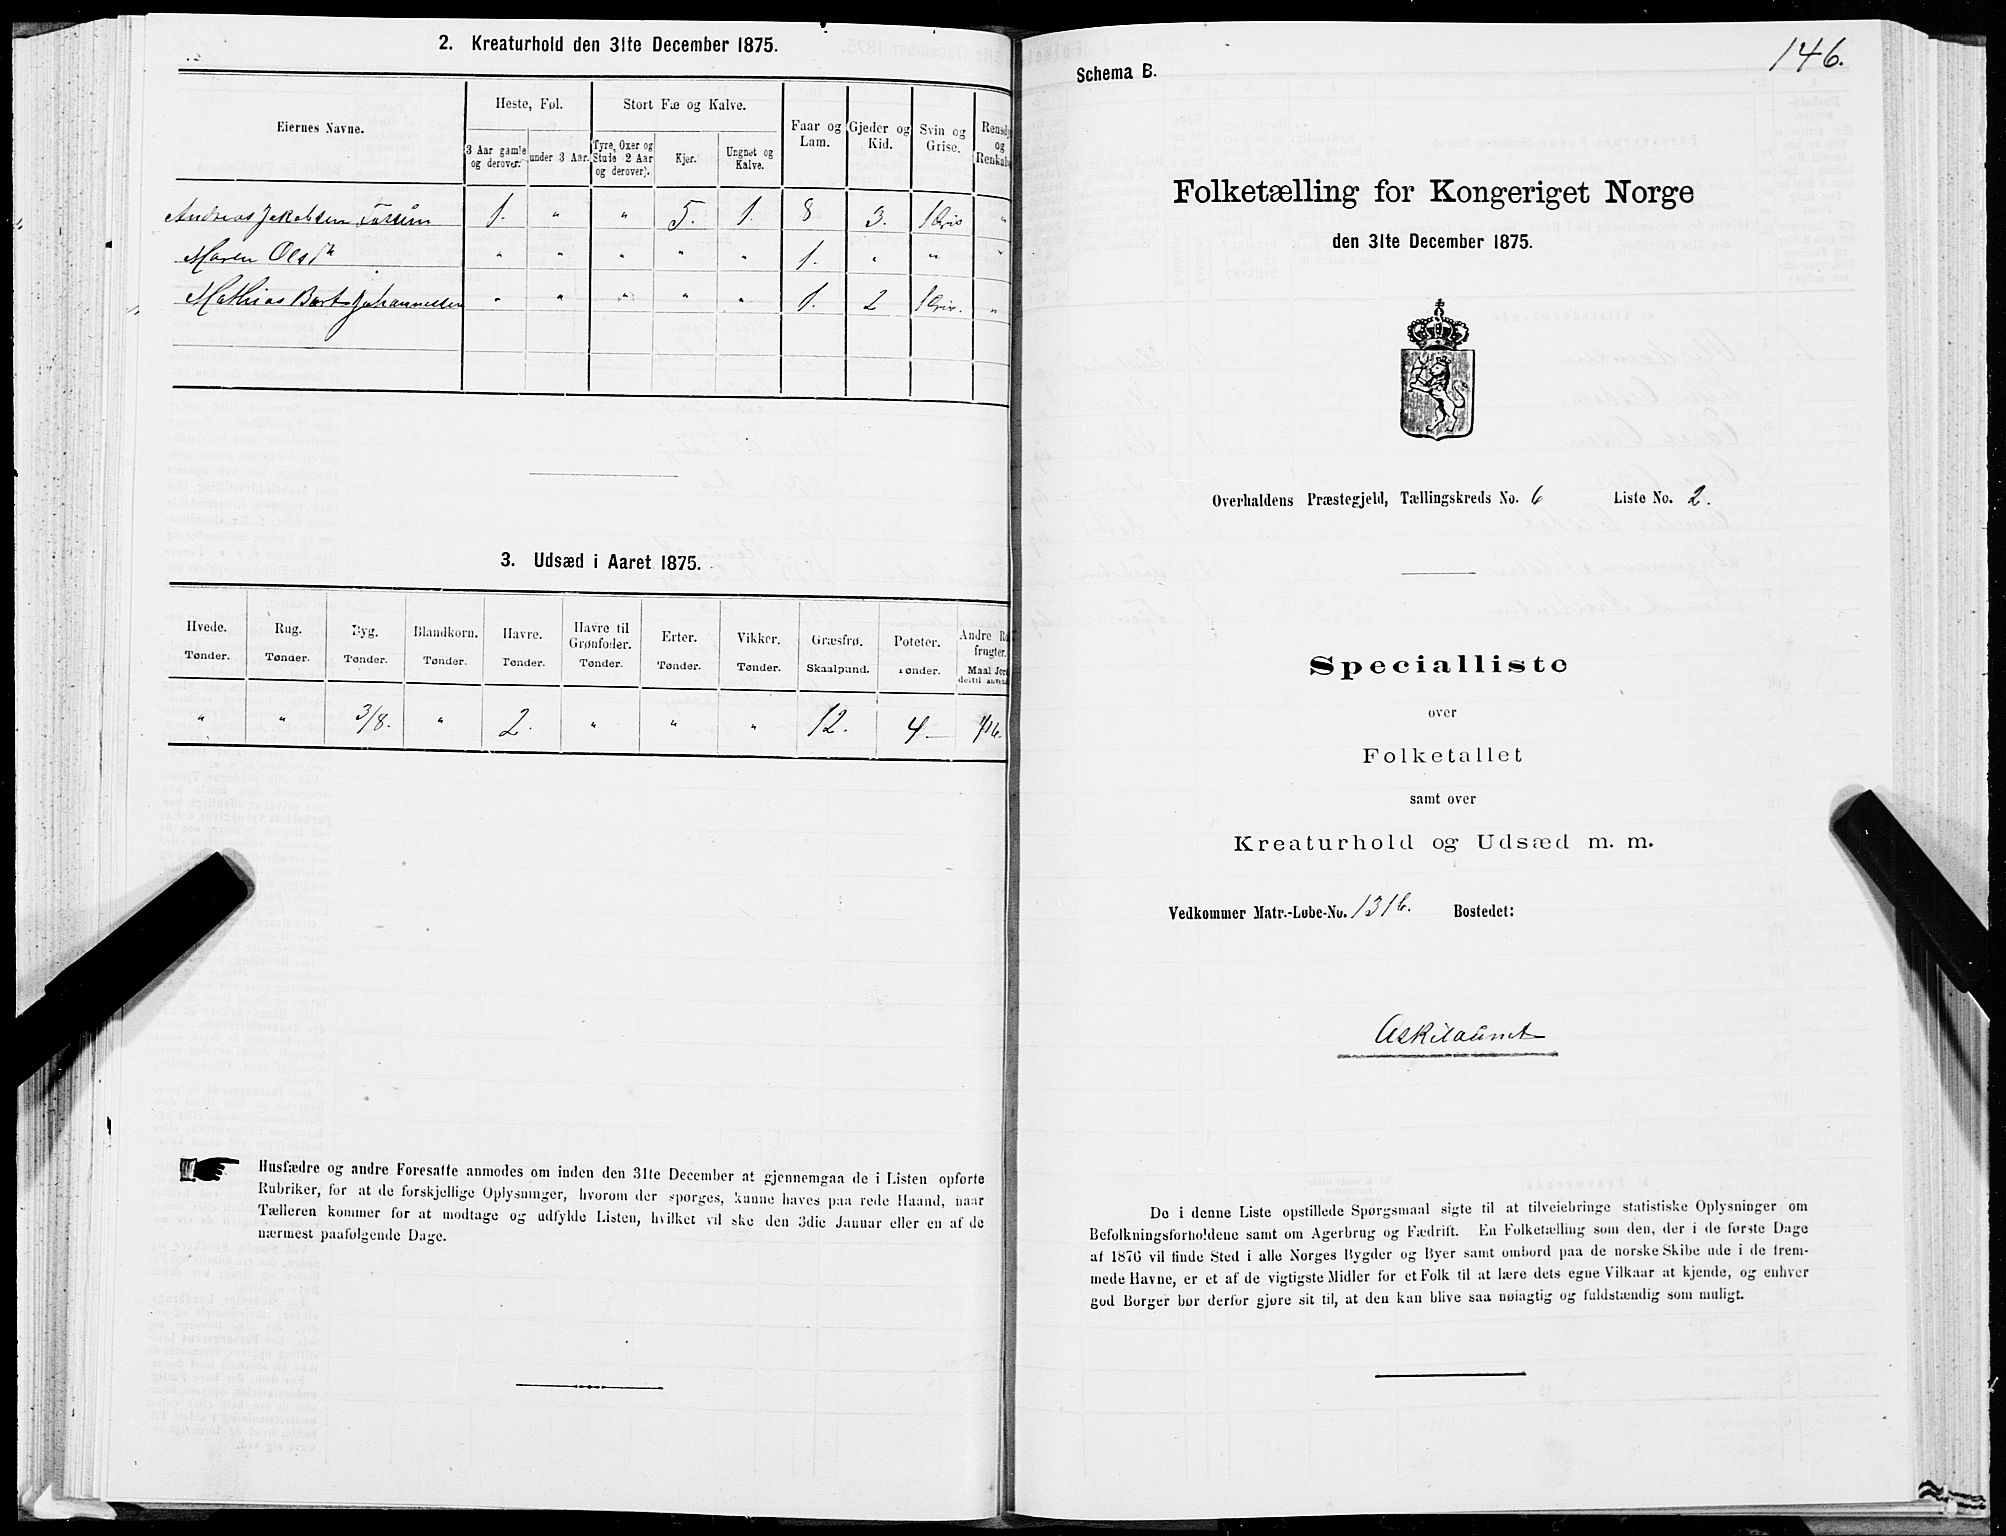 2. Kreaturhold den 31te December 1875.
Eiernes Navne.
Heste, Føl.
Stort Fæ og Kalve.
Faar og Lam.
Gjeder og Kid.
Svin og Grise.
og
3 Aar gamle og derover.
under 3 Aar.
Tyre, Oxer og Stude 2 Aar og derover).
Kjer.
Ungnet og Kalve.
Andreas Jakobsen Fossum 1. " " 5. 1. 8 3. 1 Gris "
Maren Olsdtr " " " " " 1. " " "
Mathias Johannessen " " " " " 1. 2 1 Gris. "
3. Udsæd i Aaret 1875.
Hvede. Rug. Byg. Blandkorn. Havre. Havre til Grønfoder. Erter. Vikker. Græsfrø. Poteter. Andre
Tønder. Tønder. Tønder. Tønder. Tønder. Tønder. Tønder. Tønder. Skaalpund. Tønder. Maal
" " 3/8. " 2. " " " 12. 4 1/16.
Husfædre og andre Foresatte anmodes om inden den 31te December at gjennemgaa de i Listen opførte
Rubriker, for at de forskjellige Oplysninger, hvorom der spørges, kunne haves paa rede Haand, naar
Tælleren kommer for at modtage og udfylde Listen, hvilket vil ske den 3die Januar eller en af de
nærmest paafølgende Dage.
146.
Schema B.
Folketælling for Kongeriget Norge
den 31te December 1875.
Overhaldens Præstegjeld, Tællingskreds No. 6 Liste No. 2.
Specialliste
over
Folketallet
samt over
Kreaturhold og Udsæd m. m.
Vedkommer Matr.-Løbe-No. 131b. Bostedet:
Askilaunet
De i denne Liste opstillede Spørgsmaal sigte til at tilveiebringe statistiske Oplysninger om
Befolkningsforholdene samt om Agerbrug og Fædrift. En Folketælling som den, der i de første Dage
af 1876 vil finde Sted i alle Norges Bygder og Byer samt ombord paa de norske Skibe ude i de frem-
mede Havne, er et af de vigtigste Midler for et Folk til at lære dets egne Vilkaar at kjende, og enhver
god Borger bør derfor gjøre sit til, at den kan blive saa nøiagtig og fuldstændig som muligt.